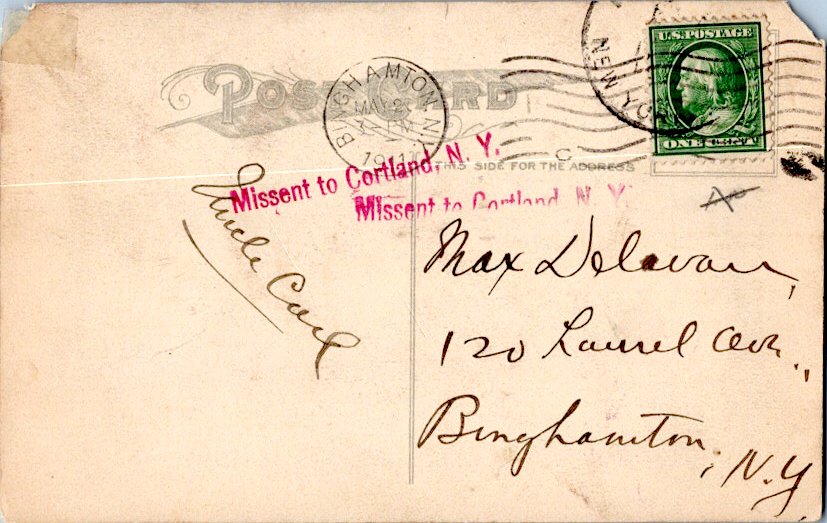 POST CARD
BINGHAMTON, N.Y.
MAY 2
1911
NEW YORK
U.S. POSTAGE
ONE CENT
THIS SIDE FOR THE ADDRESS
Missent to Cortland, N. Y.
Missent to Cortland, N. Y.
Uncle Carl
Max Delavan,
120 Laurel Ave.,
Binghamton,
N.Y.